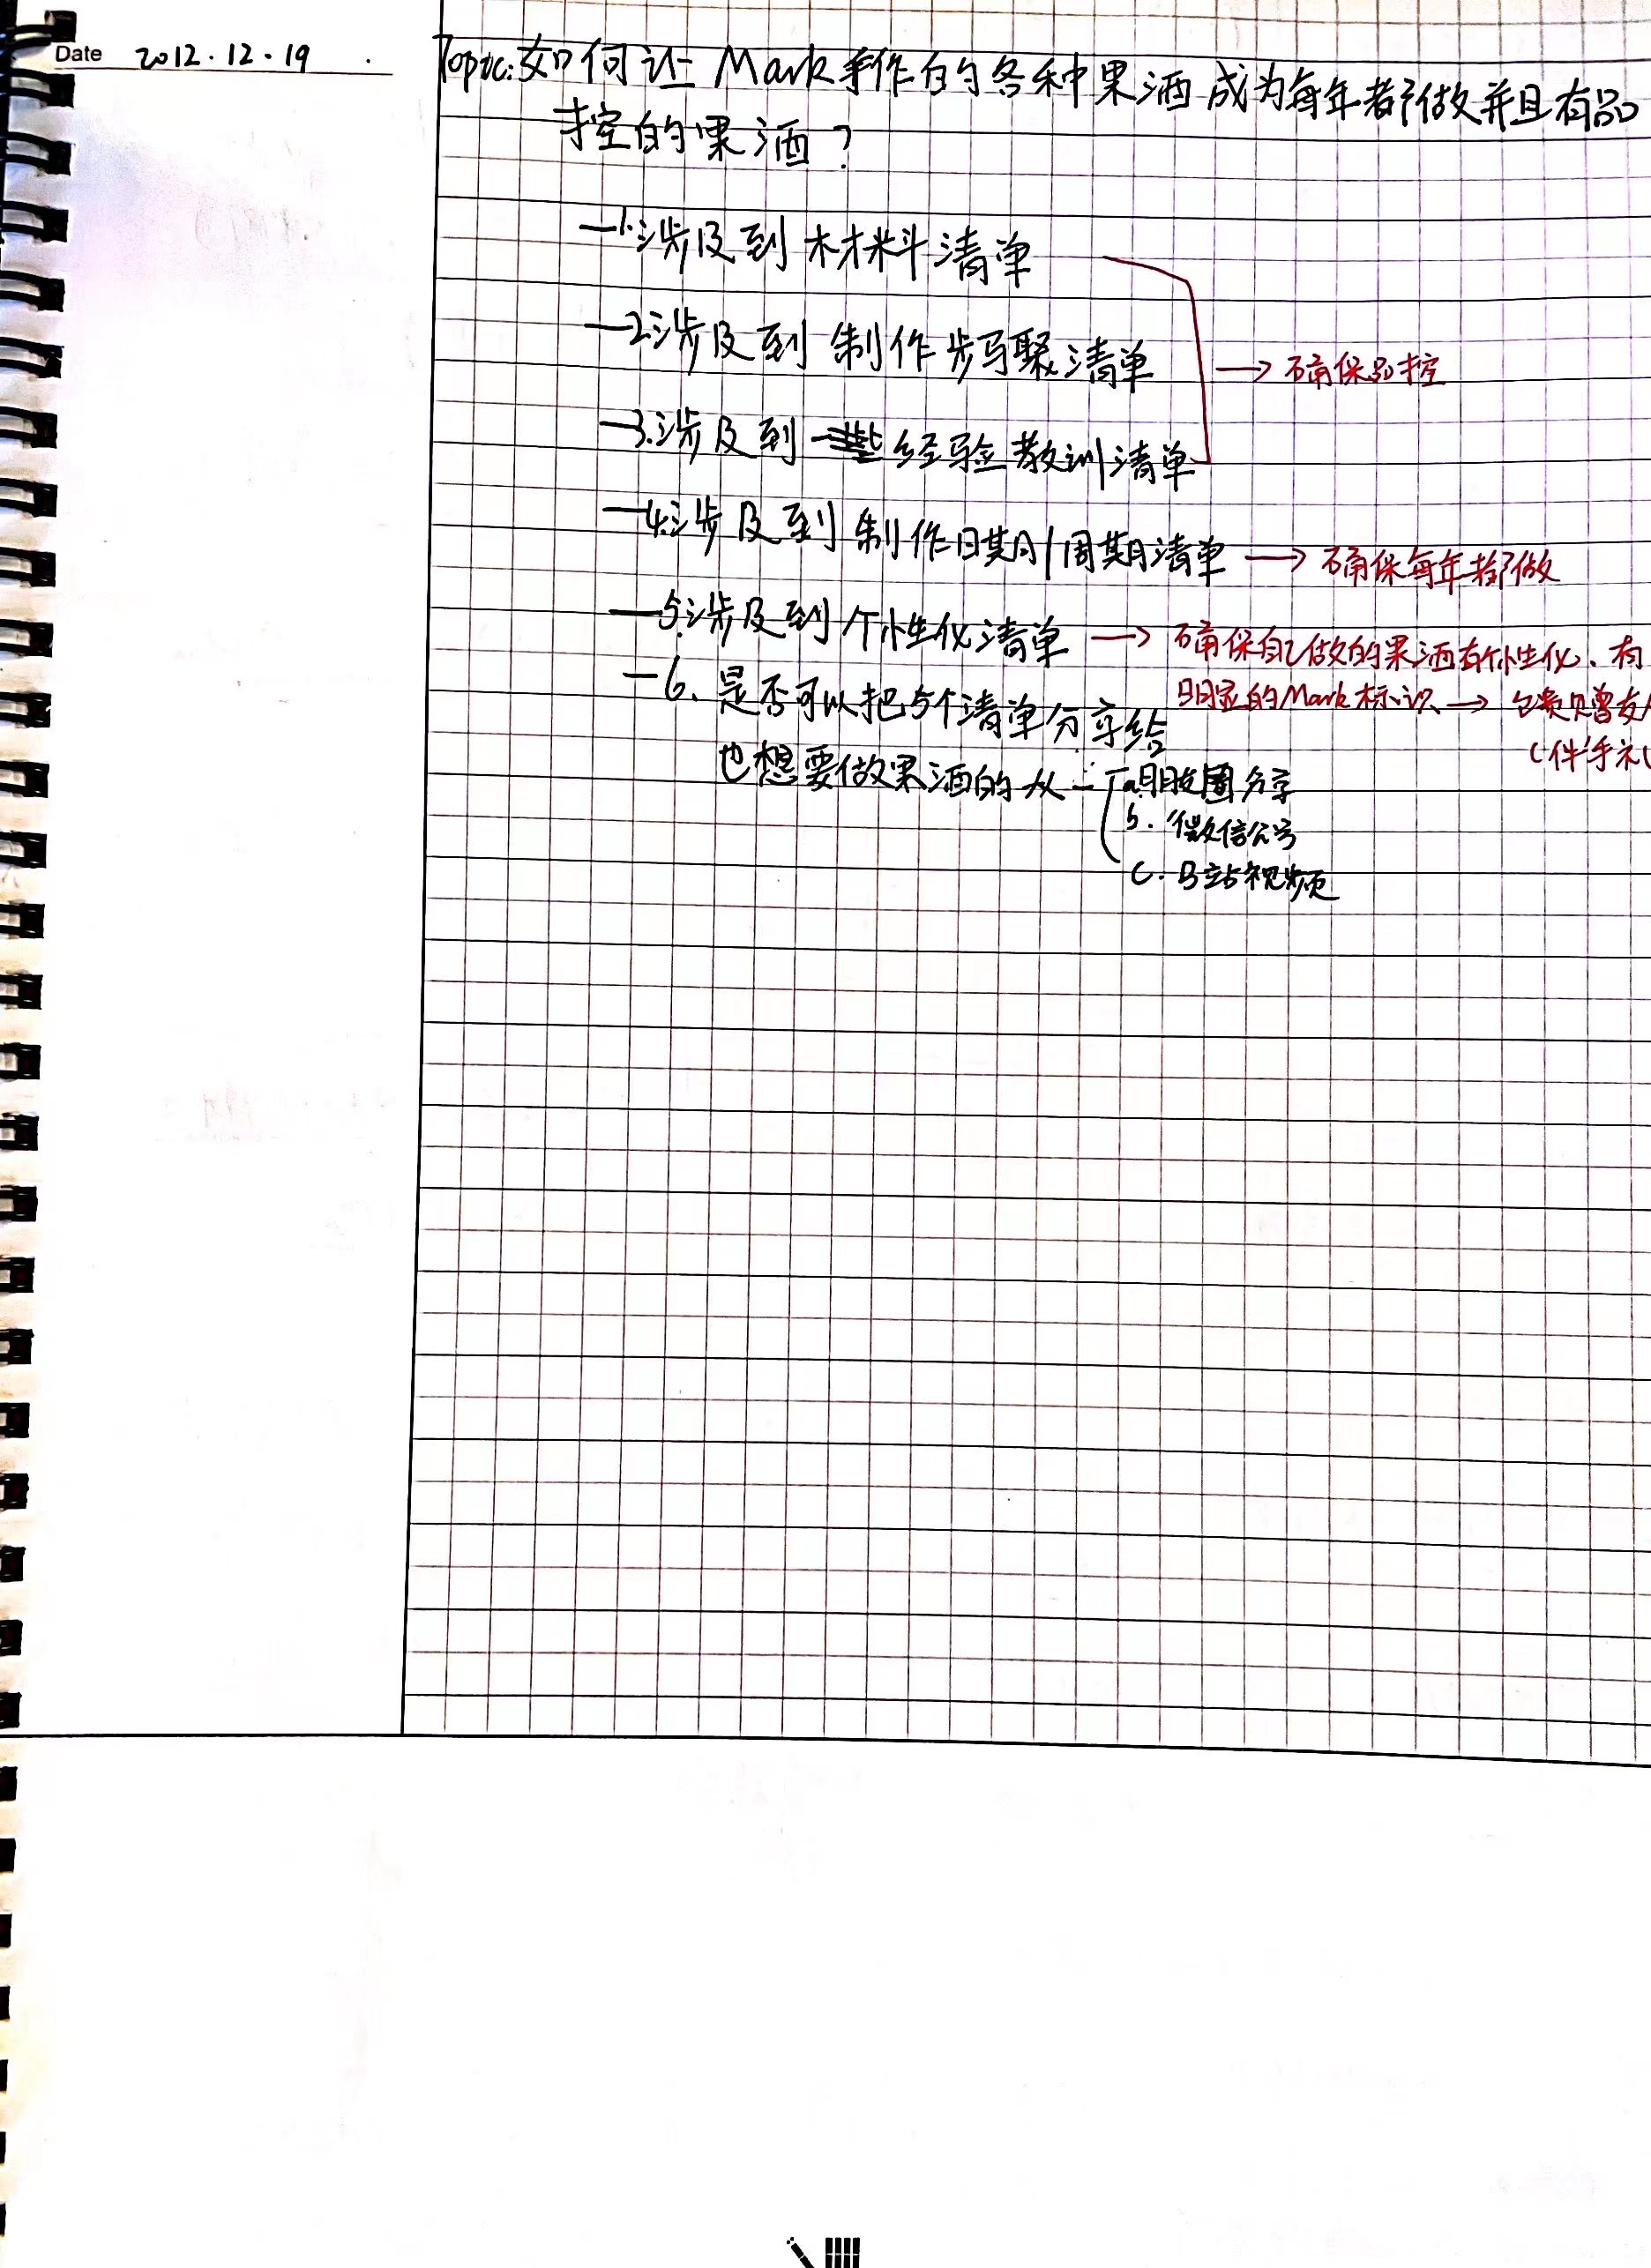 Date 2012.12.19
Topic:如何让Mark手作的各种果酒成为每年都做并且有品
控的果酒?
—1.涉及到材料清单
—2.涉及到制作步骤清单
→确保品控
—3.涉及到一些经验教训清单
—4.涉及到制作日期/周期清单→确保每年都做
—5.涉及到个性化清单→确保自己做的果酒有个性化、有
明显的Mark标识→馈赠友
(伴手礼
—6.是否可以把5个清单分享给
也想要做果酒的人—
a.朋友圈分享
b.微信公号
c.B站视频